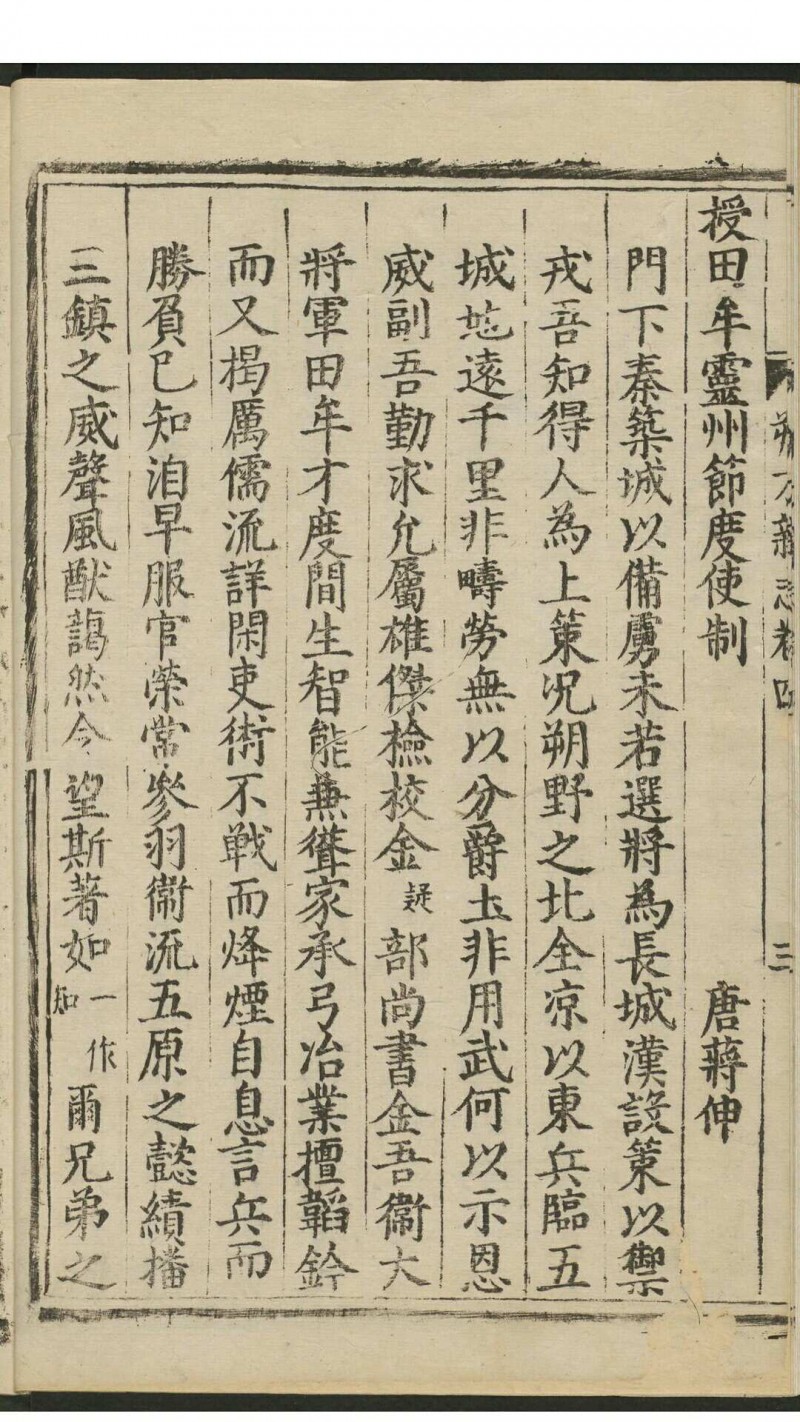 朔方新志卷四
三
授田牟靈州節度使制　唐蔣伸
門下秦築城以備虜未若選將為長城漢設策以禦
戎吾知得人為上策况朔野之北全凉以東兵臨五
城地遠千里非疇勞無以分爵土非用武何以示恩
威副吾勤求允屬雄傑檢校金疑部尚書金吾衞大
將軍田牟才度間生智能兼徫家承弓冶業擅韜鈐
而又揭厲儒流詳閑吏術不戰而烽煙自息言兵而
勝負已知洎早服官榮常參羽衞流五原之懿績播
三鎮之威聲風猷藹然令望斯著如一作知爾兄弟之